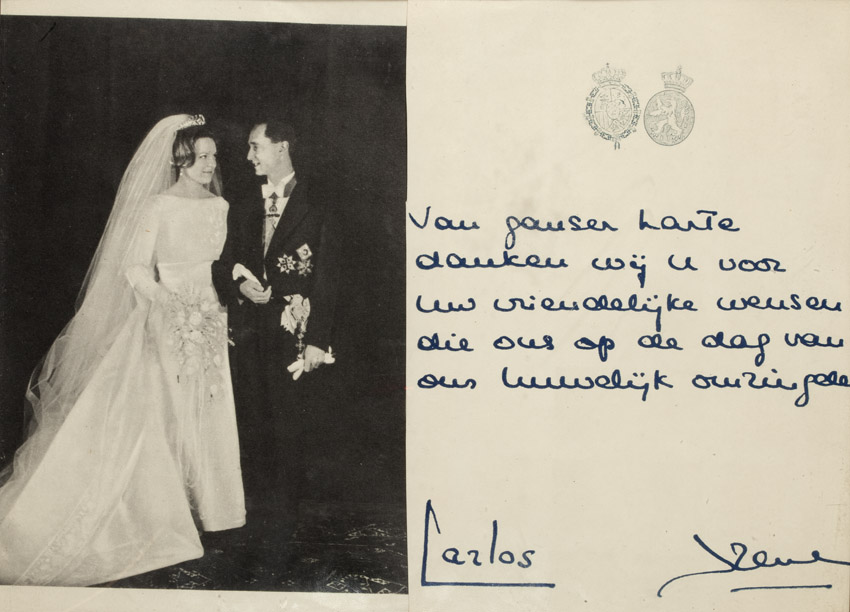 Van ganser harte
danken wij U voor
Uw vriendelijke wensen
die ons op de dag van
ons huwelijk omringde
Carlos
Irene